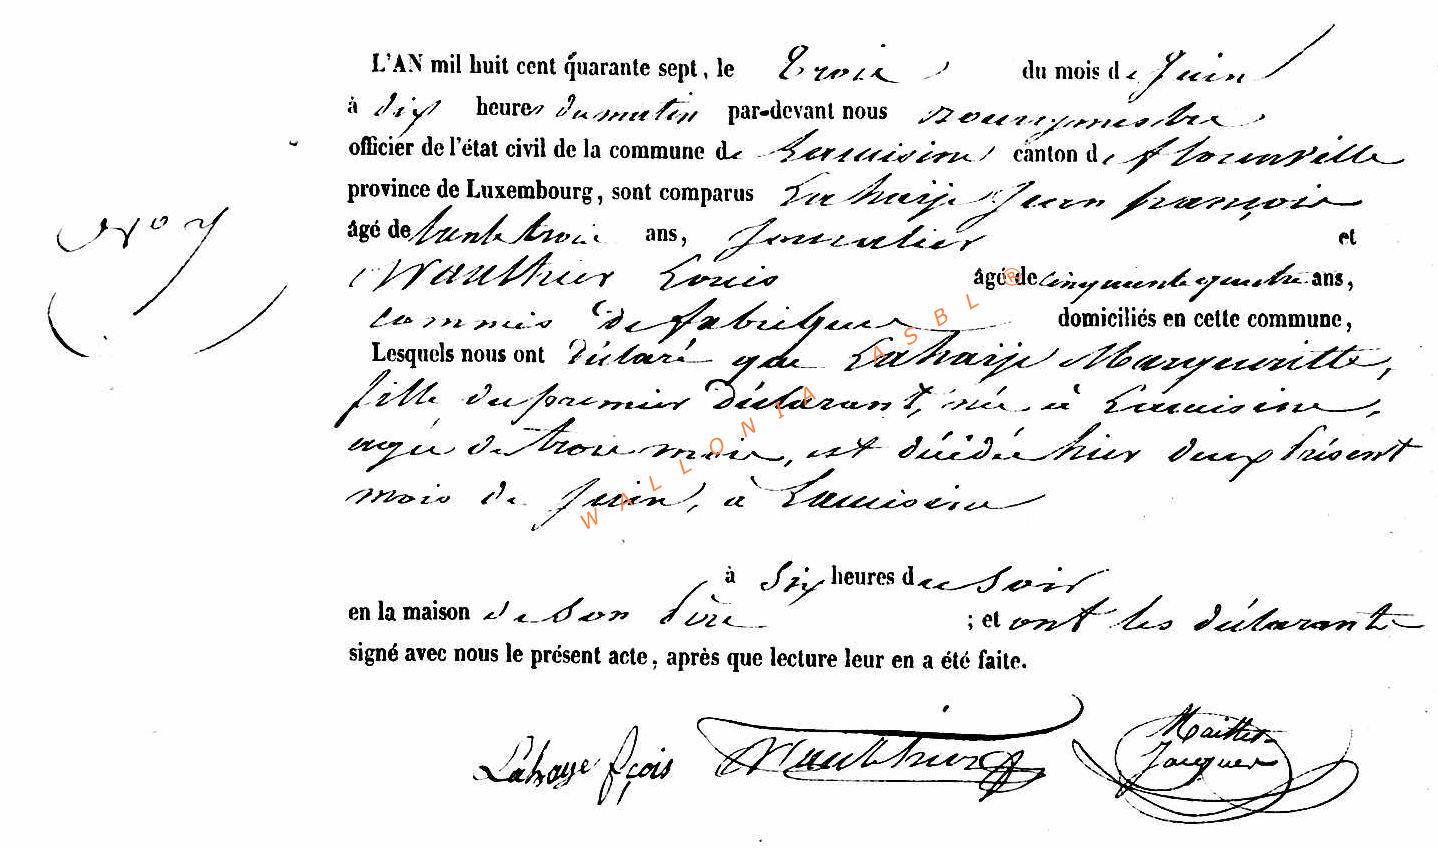 L'AN mil huit cent quarante sept, le Trois du mois de Juin
à dix heures du matin par-devant nous Bourgmestre
officier de l'état civil de la commune de Lacuisine canton de Florenville
province de Luxembourg, sont comparus Lahaije Jean françois
âgé de trente trois ans, Journalier et
Wauthier Louis âgé de cinquante quatre ans,
commis de fabrique domiciliés en cette commune,
Lesquels nous ont déclaré que Lahaije Margueritte,
fille du premier déclarant, née à Lacuisine,
agée de trois mois, est décédée hier deux présent
mois de Juin, à Lacuisine
à Six heures du Soir
en la maison de Son Père ; et ont les déclarants
signé avec nous le présent acte, après que lecture leur en a été faite.
Lahaye fçois Wauthier Maillet
Jacques
N° 7
WALLONIA ASBL ®